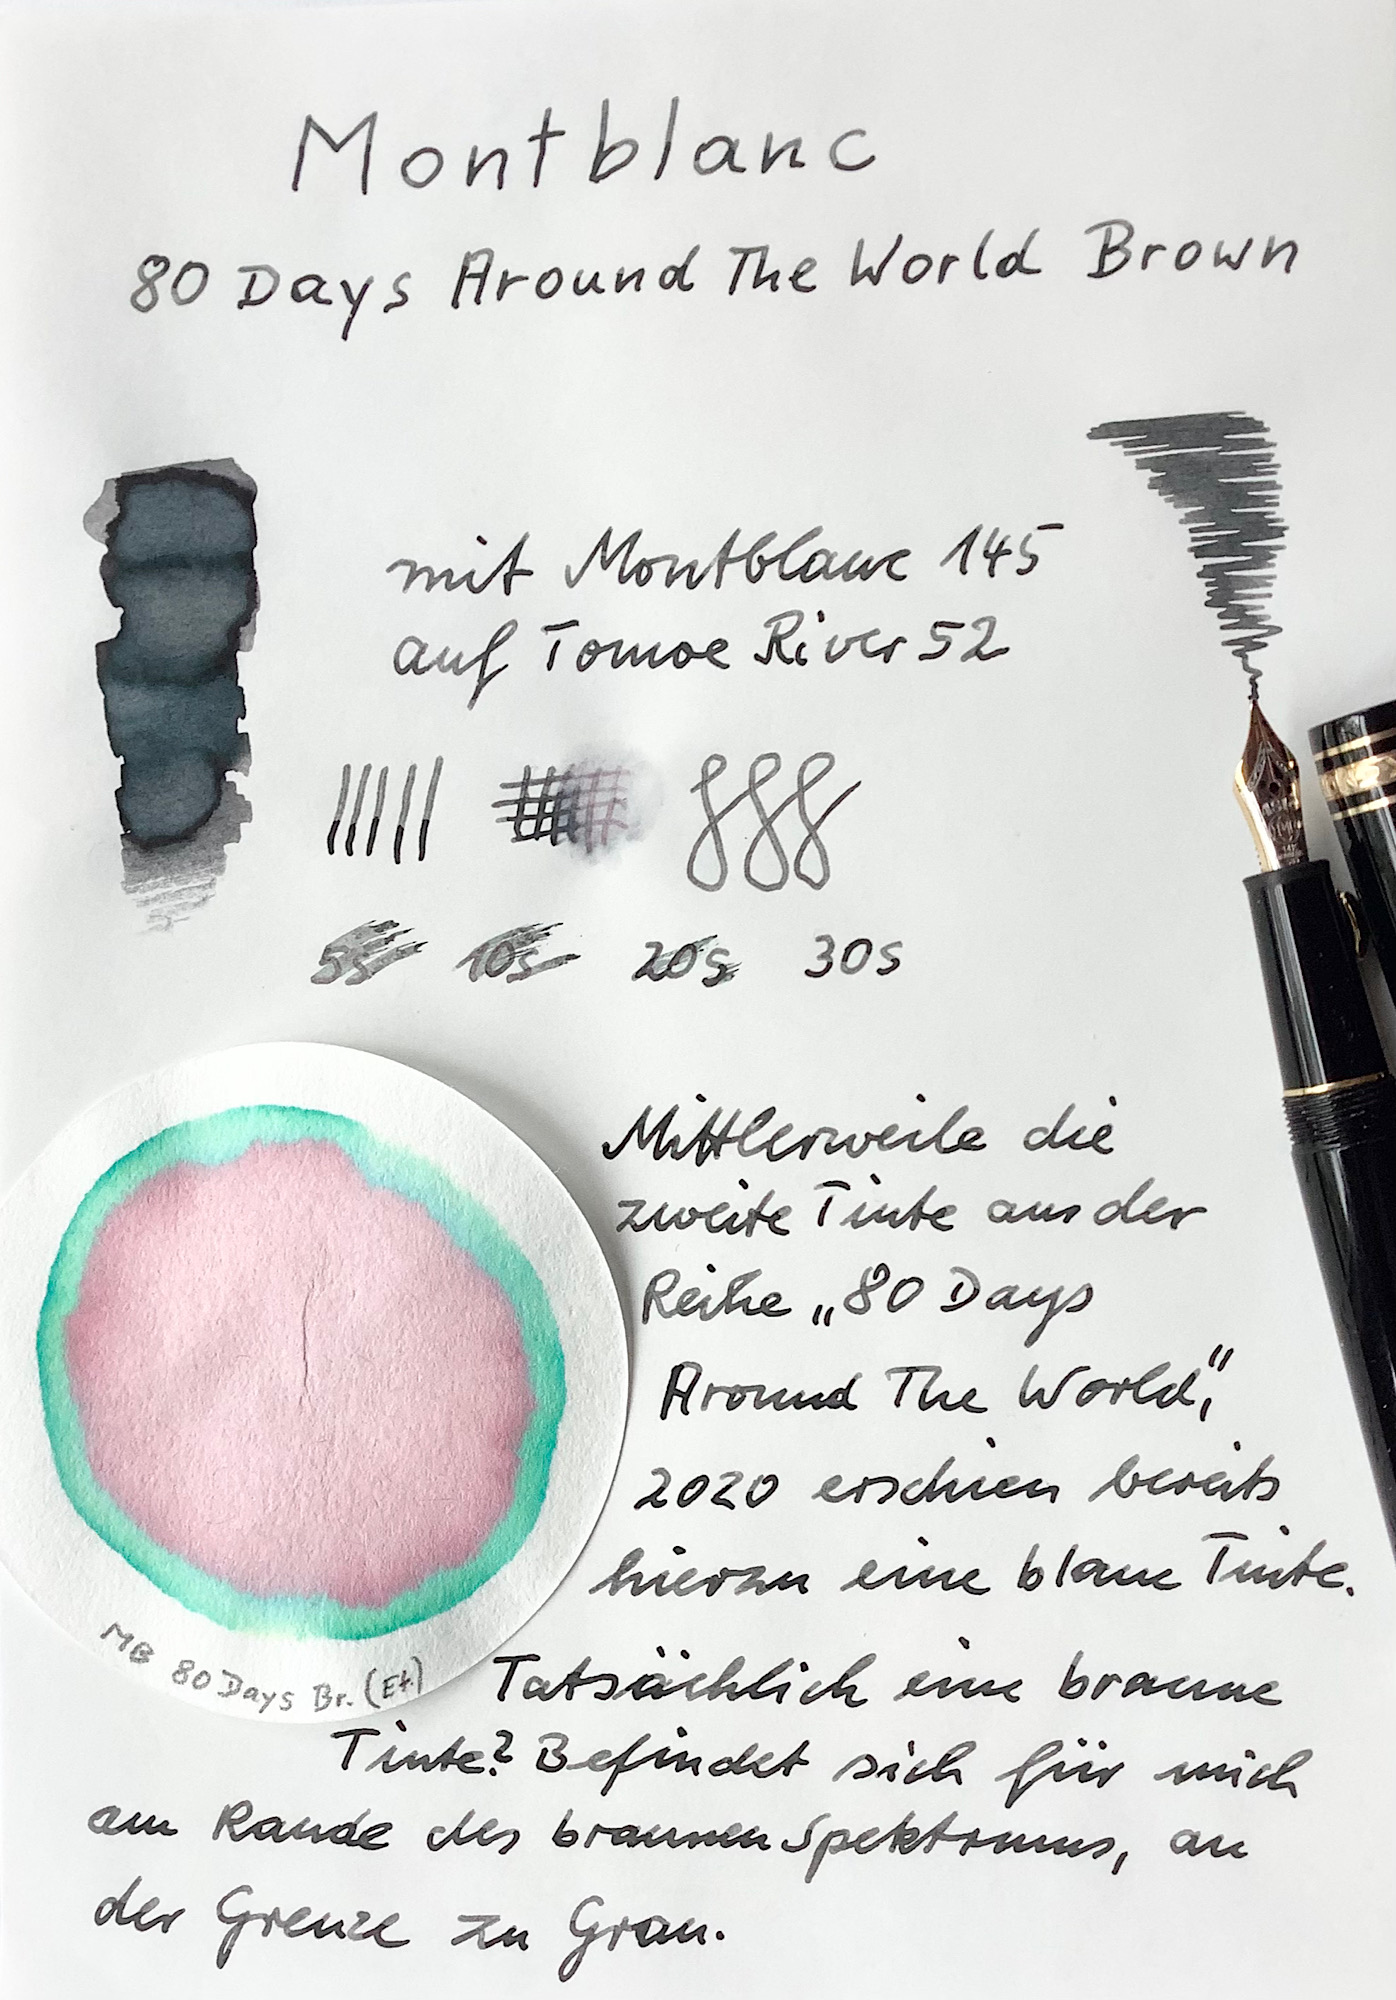 Montblanc
80 Days Around The World Brown
mit Montblanc 145
auf Tomoe River 52
5s 10s 20s 30s
Mittlerweile die
zweite Tinte aus der
Reihe „80 Days
Around The World",
2020 erschien bereits
hierzu eine blaue Tinte.
MB 80 Days Br. (Et)
Tatsächlich eine braune
Tinte? Befindet sich für mich
am Rande des braunen Spektrums, an
der Grenze zu Grau.